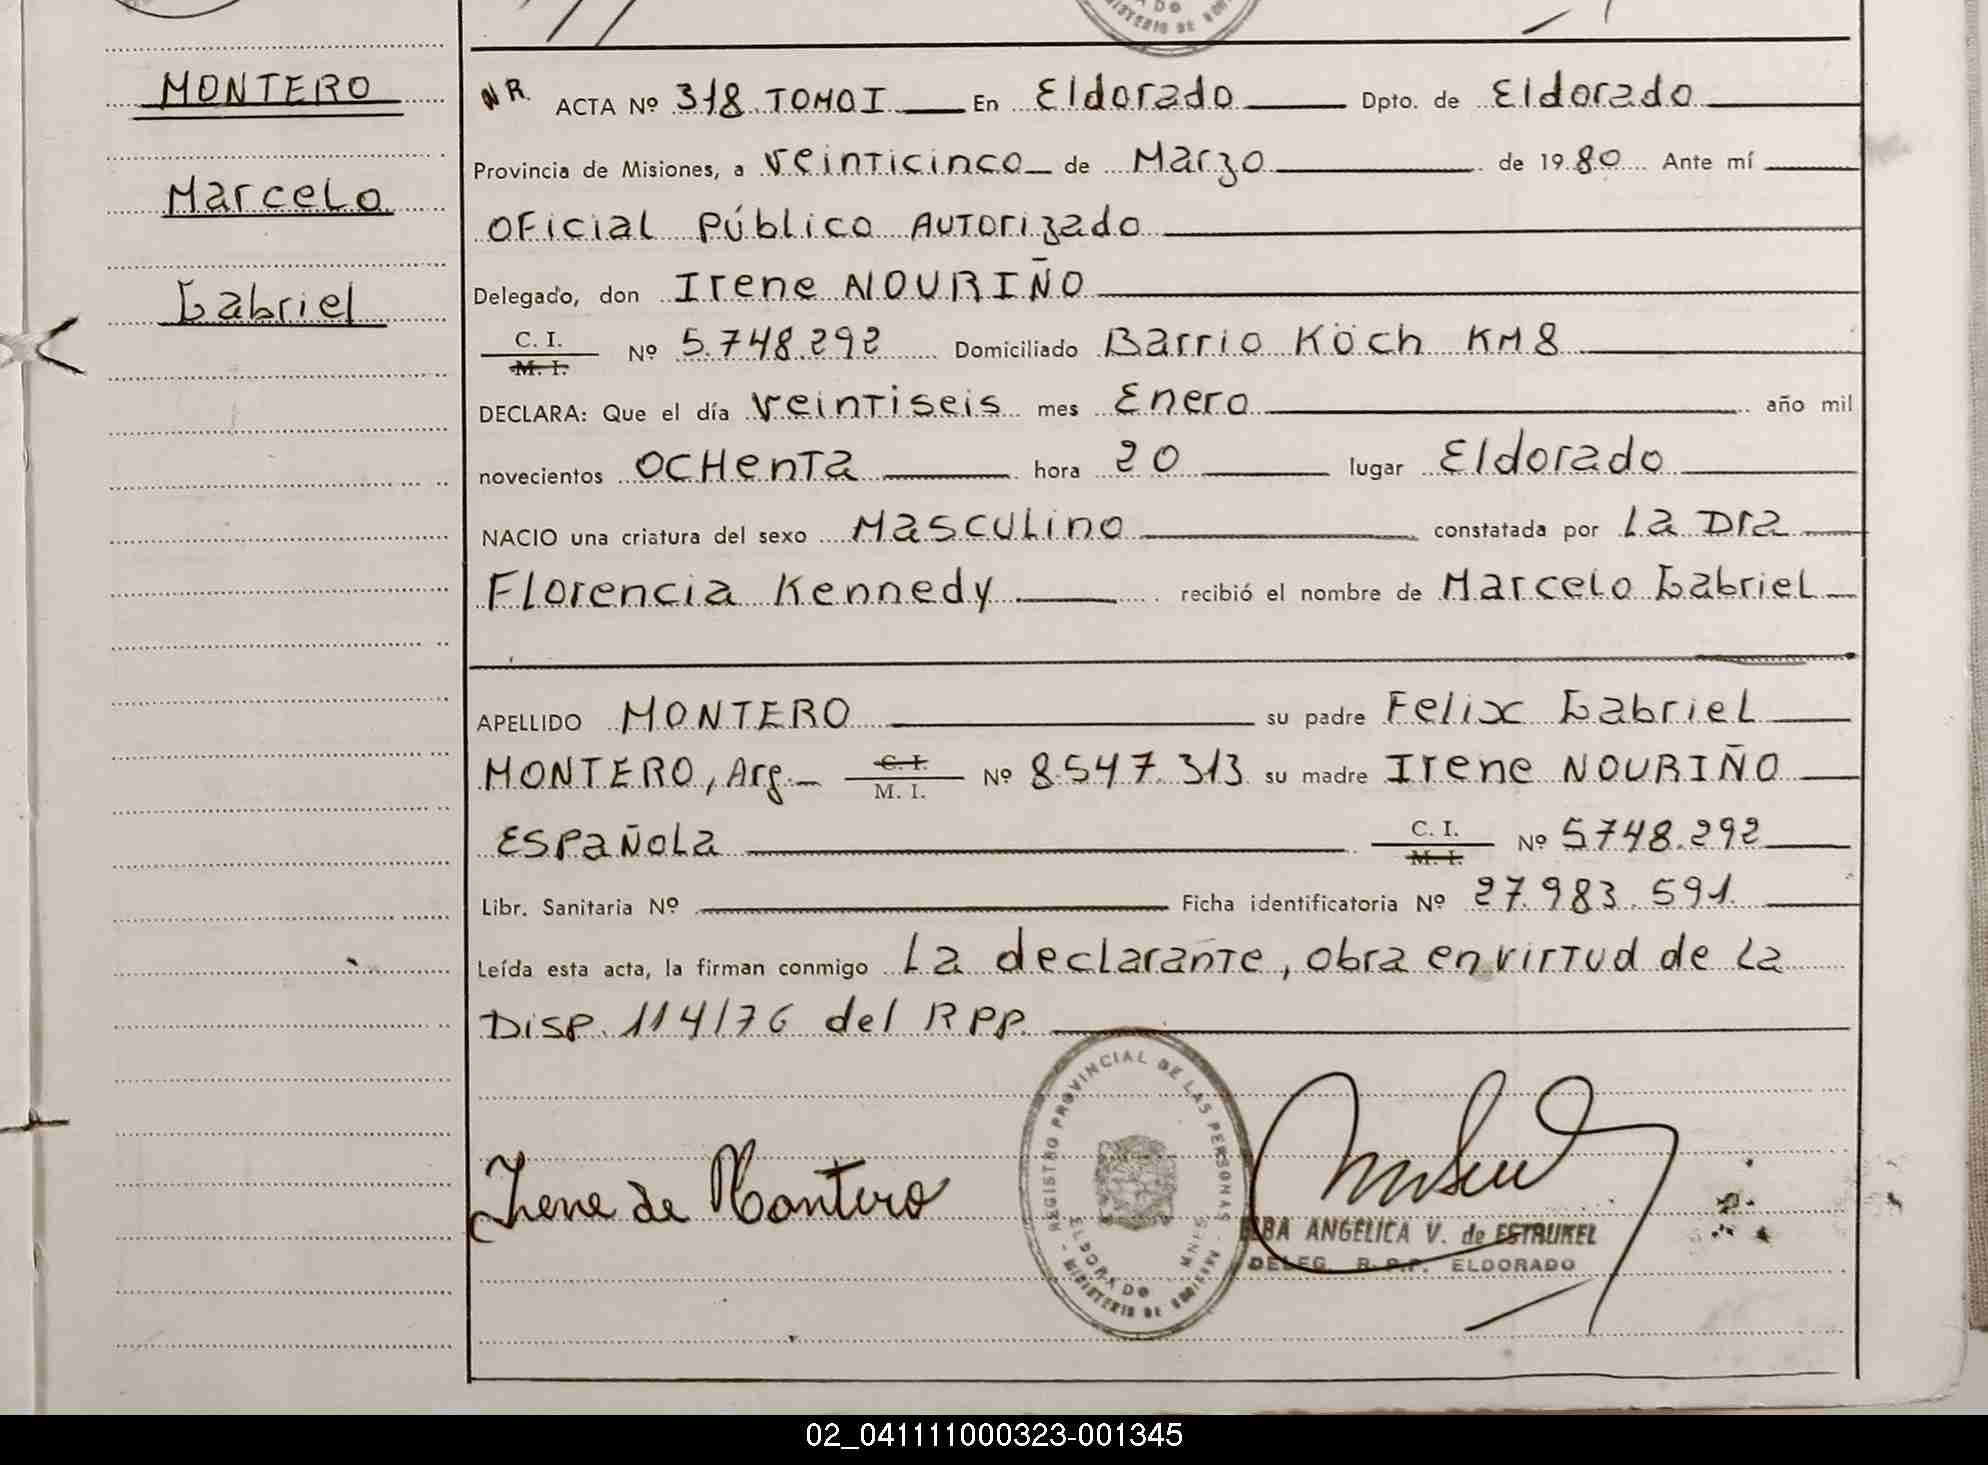 MONTERO
Marcelo
Gabriel
NR. ACTA Nº 318 TOMO I En Eldorado Dpto. de Eldorado
Provincia de Misiones, a veinticinco de Marzo de 1980 Ante mí
Oficial Público Autorizado
Delegado, don Irene NOURIÑO
C. I.
M. I.
Nº 5.748.292 Domiciliado Barrio Köch KM8
DECLARA: Que el día veintiseis mes Enero año mil
novecientos ochenta hora 20 lugar Eldorado
NACIO una criatura del sexo Masculino constatada por La Dra
Florencia Kennedy recibió el nombre de Marcelo Gabriel
APELLIDO MONTERO su padre Felix Gabriel
MONTERO, Arg. C. I. M. I. Nº 8.547.313 su madre Irene NOURIÑO
Española C. I. M. I. Nº 5.748.292
Libr. Sanitaria Nº Ficha identificatoria Nº 27.983.591.
Leída esta acta, la firman conmigo La declarante, obra en virtud de la
Disp. 114/76 del RPP.
REGISTRO PROVINCIAL DE LAS PERSONAS
ELDORADO MNES
MINISTERIO DE GOBIERNO
Irene de Montero
ELBA ANGELICA V. de ESTRUKEL
DELEG. R.P.P. ELDORADO
02_041111000323-001345